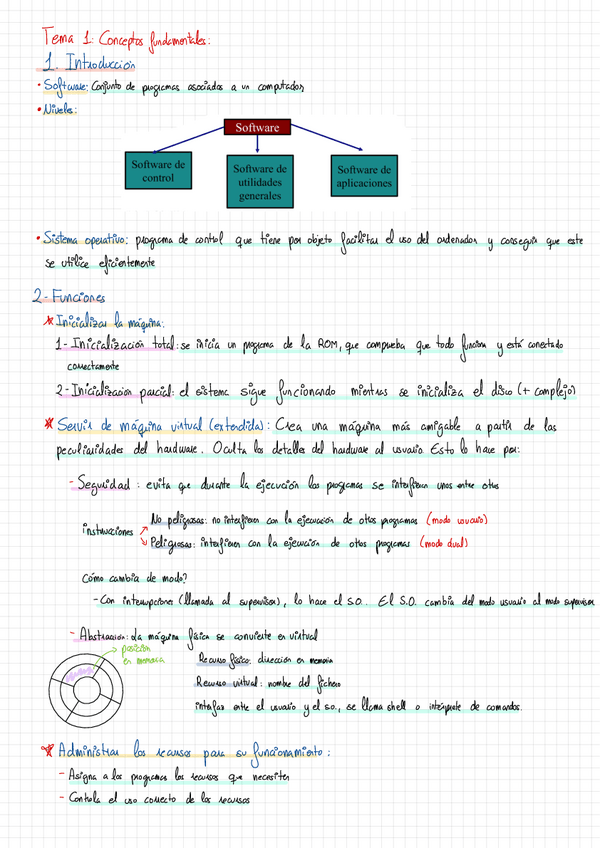 Tema 1: Conceptos fundamentales:
1. Introducción
• Software: Conjunto de programas asociados a un computador
• Niveles:
Software
Software de control
Software de utilidades generales
Software de aplicaciones
• Sistema operativo: programa de control que tiene por objeto facilitar el uso del ordenador y conseguir que este
se utilice eficientemente
2- Funciones
* Inicializar la máquina:
1- Inicialización total: se inicia un programa de la ROM, que comprueba que todo funciona y está conectado
correctamente
2- Inicialización parcial: el sistema sigue funcionando mientras se inicializa el disco (+ complejo)
* Servir de máquina virtual (extendida): Crea una máquina más amigable a partir de las
peculiaridades del hardware. Oculta los detalles del hardware al usuario Esto lo hace por:
- Seguridad: evita que durante la ejecución los programas se interfieran unos entre otros
instrucciones
No peligrosas: no interfieren con la ejecución de otros programas (modo usuario)
Peligrosas: interfieren con la ejecución de otros programas (modo dual)
Cómo cambia de modo?
- Con interrupciones (llamada al supervisor), lo hace el S.O. El S.O. cambia del modo usuario al modo supervisor
- Abstracción: La máquina física se convierte en virtual
posición en memoria
Recurso físico: dirección en memoria
Recurso virtual: nombre del fichero
interfaz entre el usuario y el s.o., se llama shell o intérprete de comandos.
* Administrar los recursos para su funcionamiento:
- Asigna a los programas los recursos que necesiten
- Controla el uso correcto de los recursos